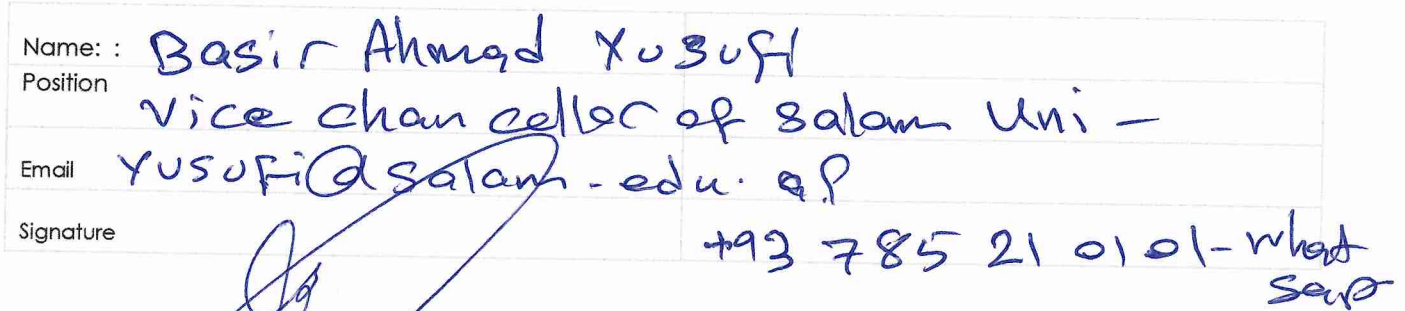 Name: : Basir Ahmad Yusufi
Position
Vice chanceller of salam Uni -
Email Yusufi@salam-edu.af
Signature
+93 785 21 01 01 - what
sap